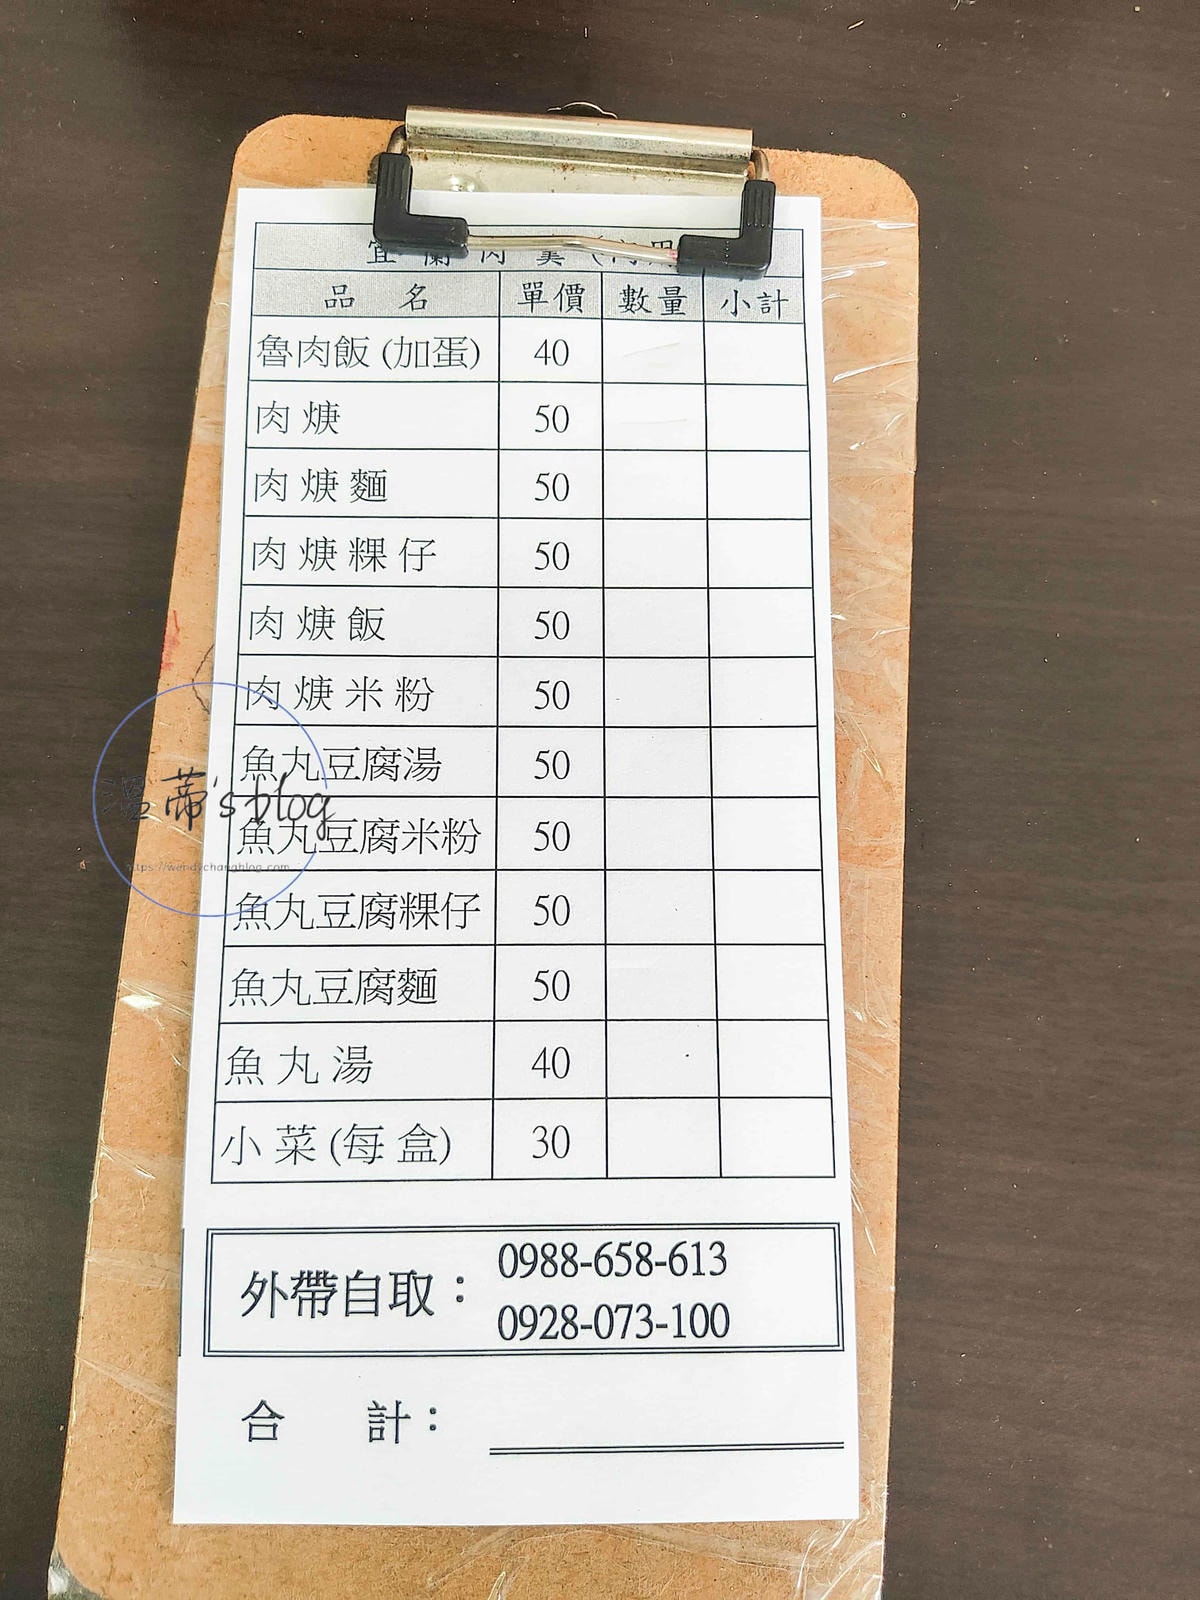 宜蘭肉羹(內用
品 名 單價 數量 小計
魯肉飯(加蛋) 40
肉焿 50
肉焿麵 50
肉焿粿仔 50
肉焿飯 50
肉焿米粉 50
魚丸豆腐湯 50
溫蒂's blog
魚丸豆腐米粉 50
https://wendychangblog.com
魚丸豆腐粿仔 50
魚丸豆腐麵 50
魚丸湯 40
小菜(每盒) 30
外帶自取： 0988-658-613
0928-073-100
合 計：